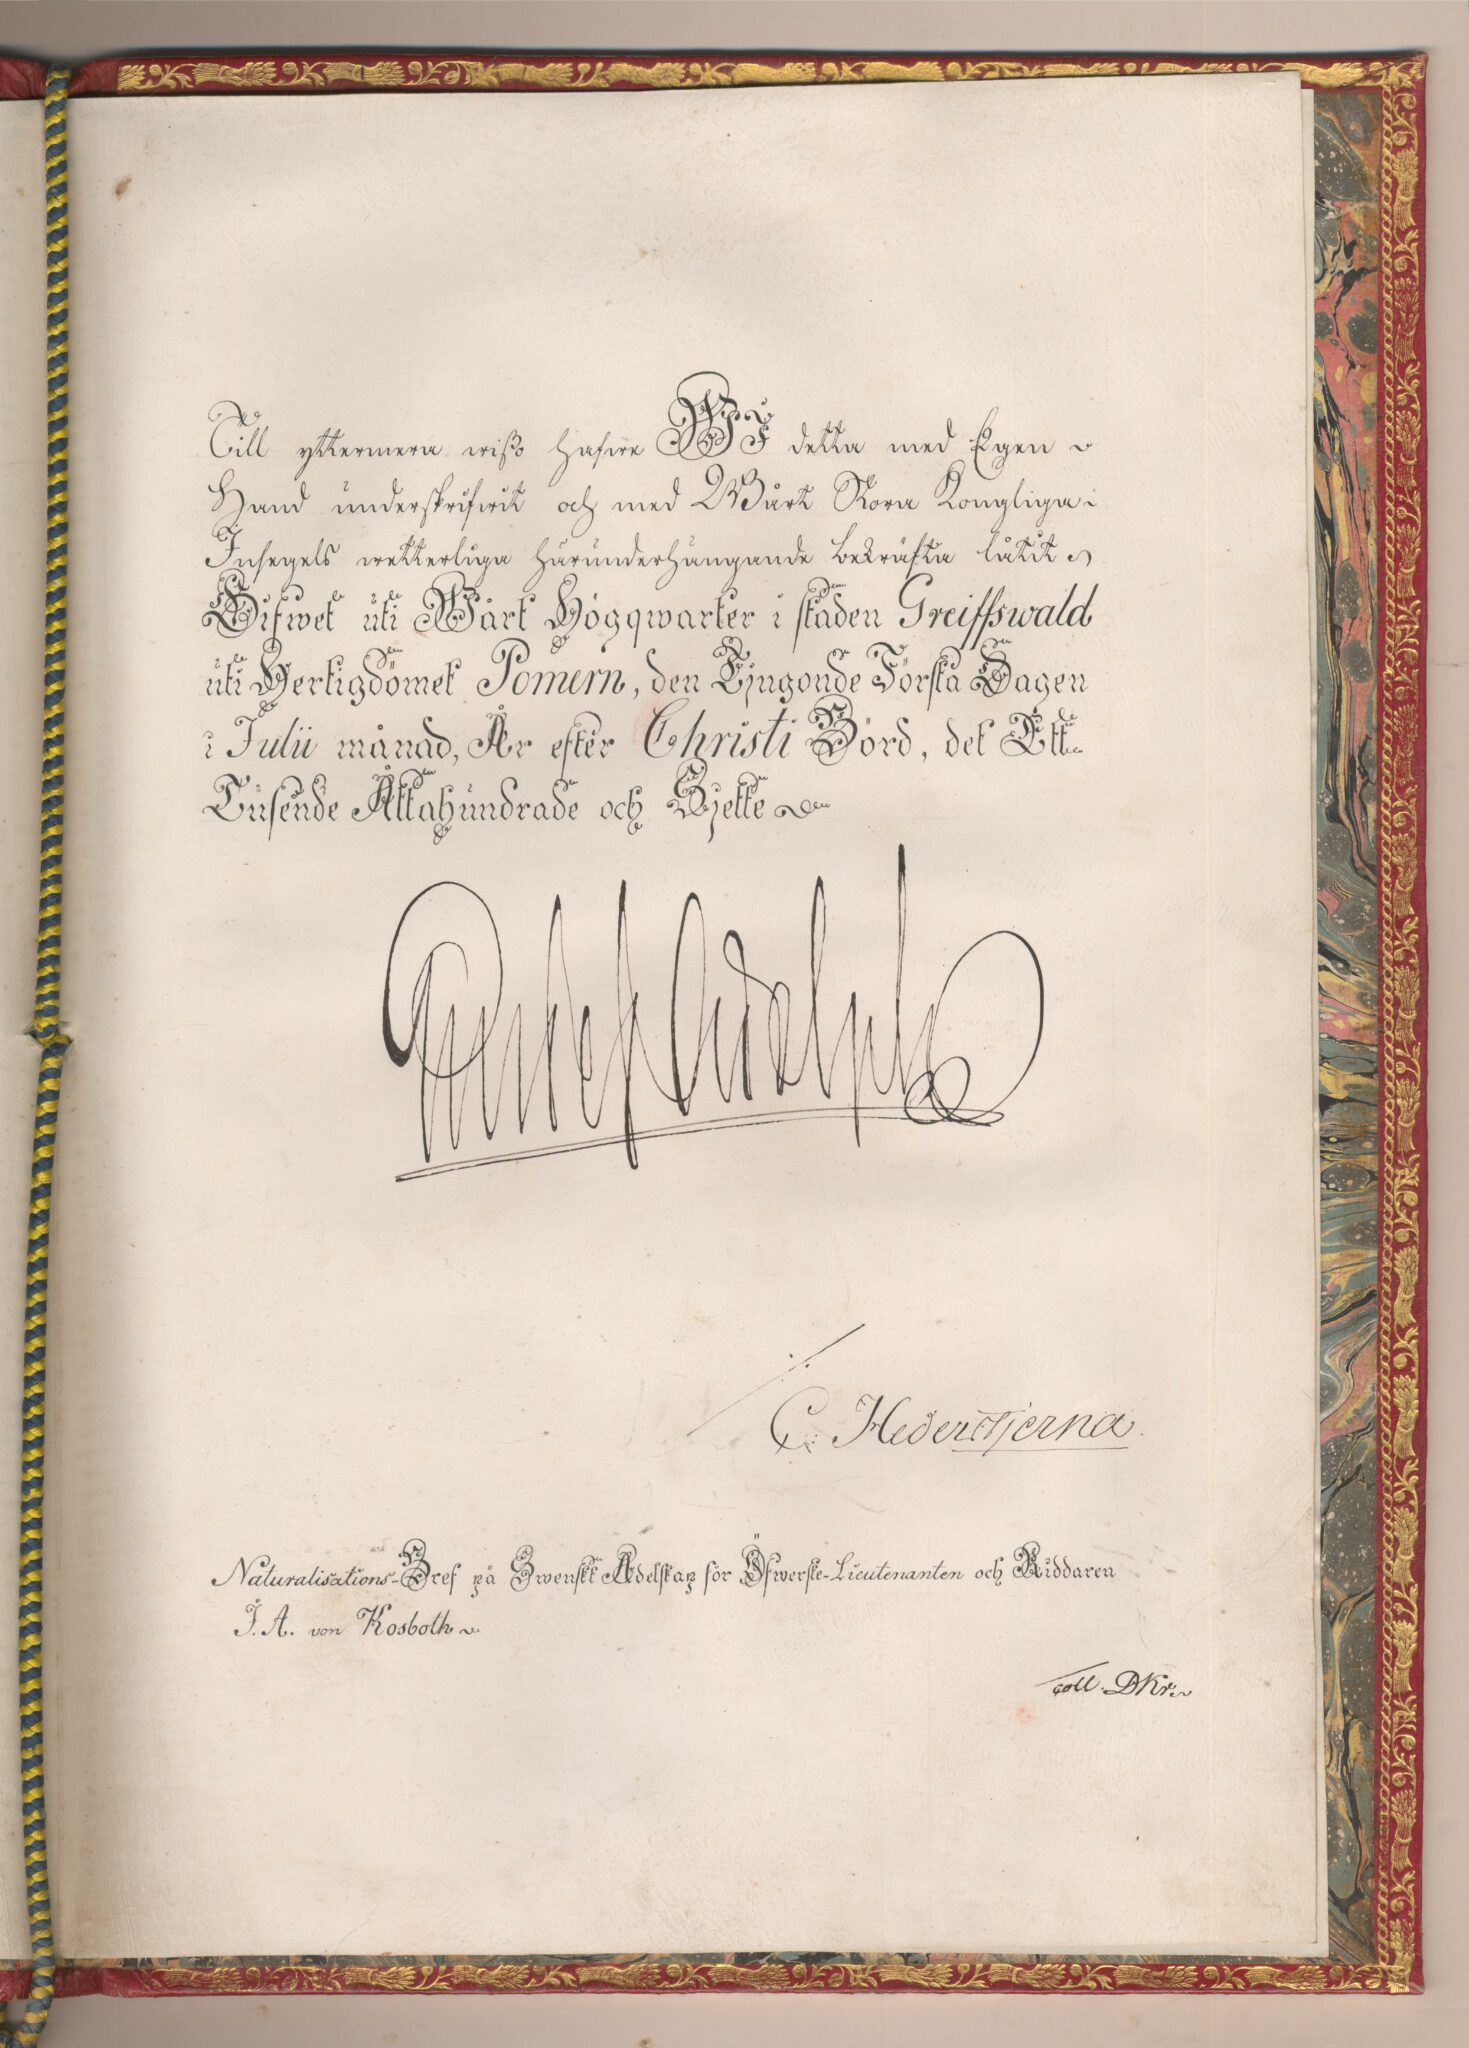 Till yttermera wiſso hafwe Wi detta med Egen
Hand underskrifwit och med Wårt Stora Kongliga
Insegels wetterliga härunderhängande bekräfta låtit
Gifwet uti Wårt Högqwarter i staden Greiffswald
uti Hertigdömet Pomern, den Tjugonde Första Dagen
i Julii månad, År efter Christi Börd, det Ett
Tusende Åttahundrade och Sjette
Gustaf Adolph
C. Hederstjerna
Naturalisations-Bref på Swenskt Adelskap för Öfwerste-Lieutenanten och Riddaren
J. A. von Kosboth
coll. DKr: